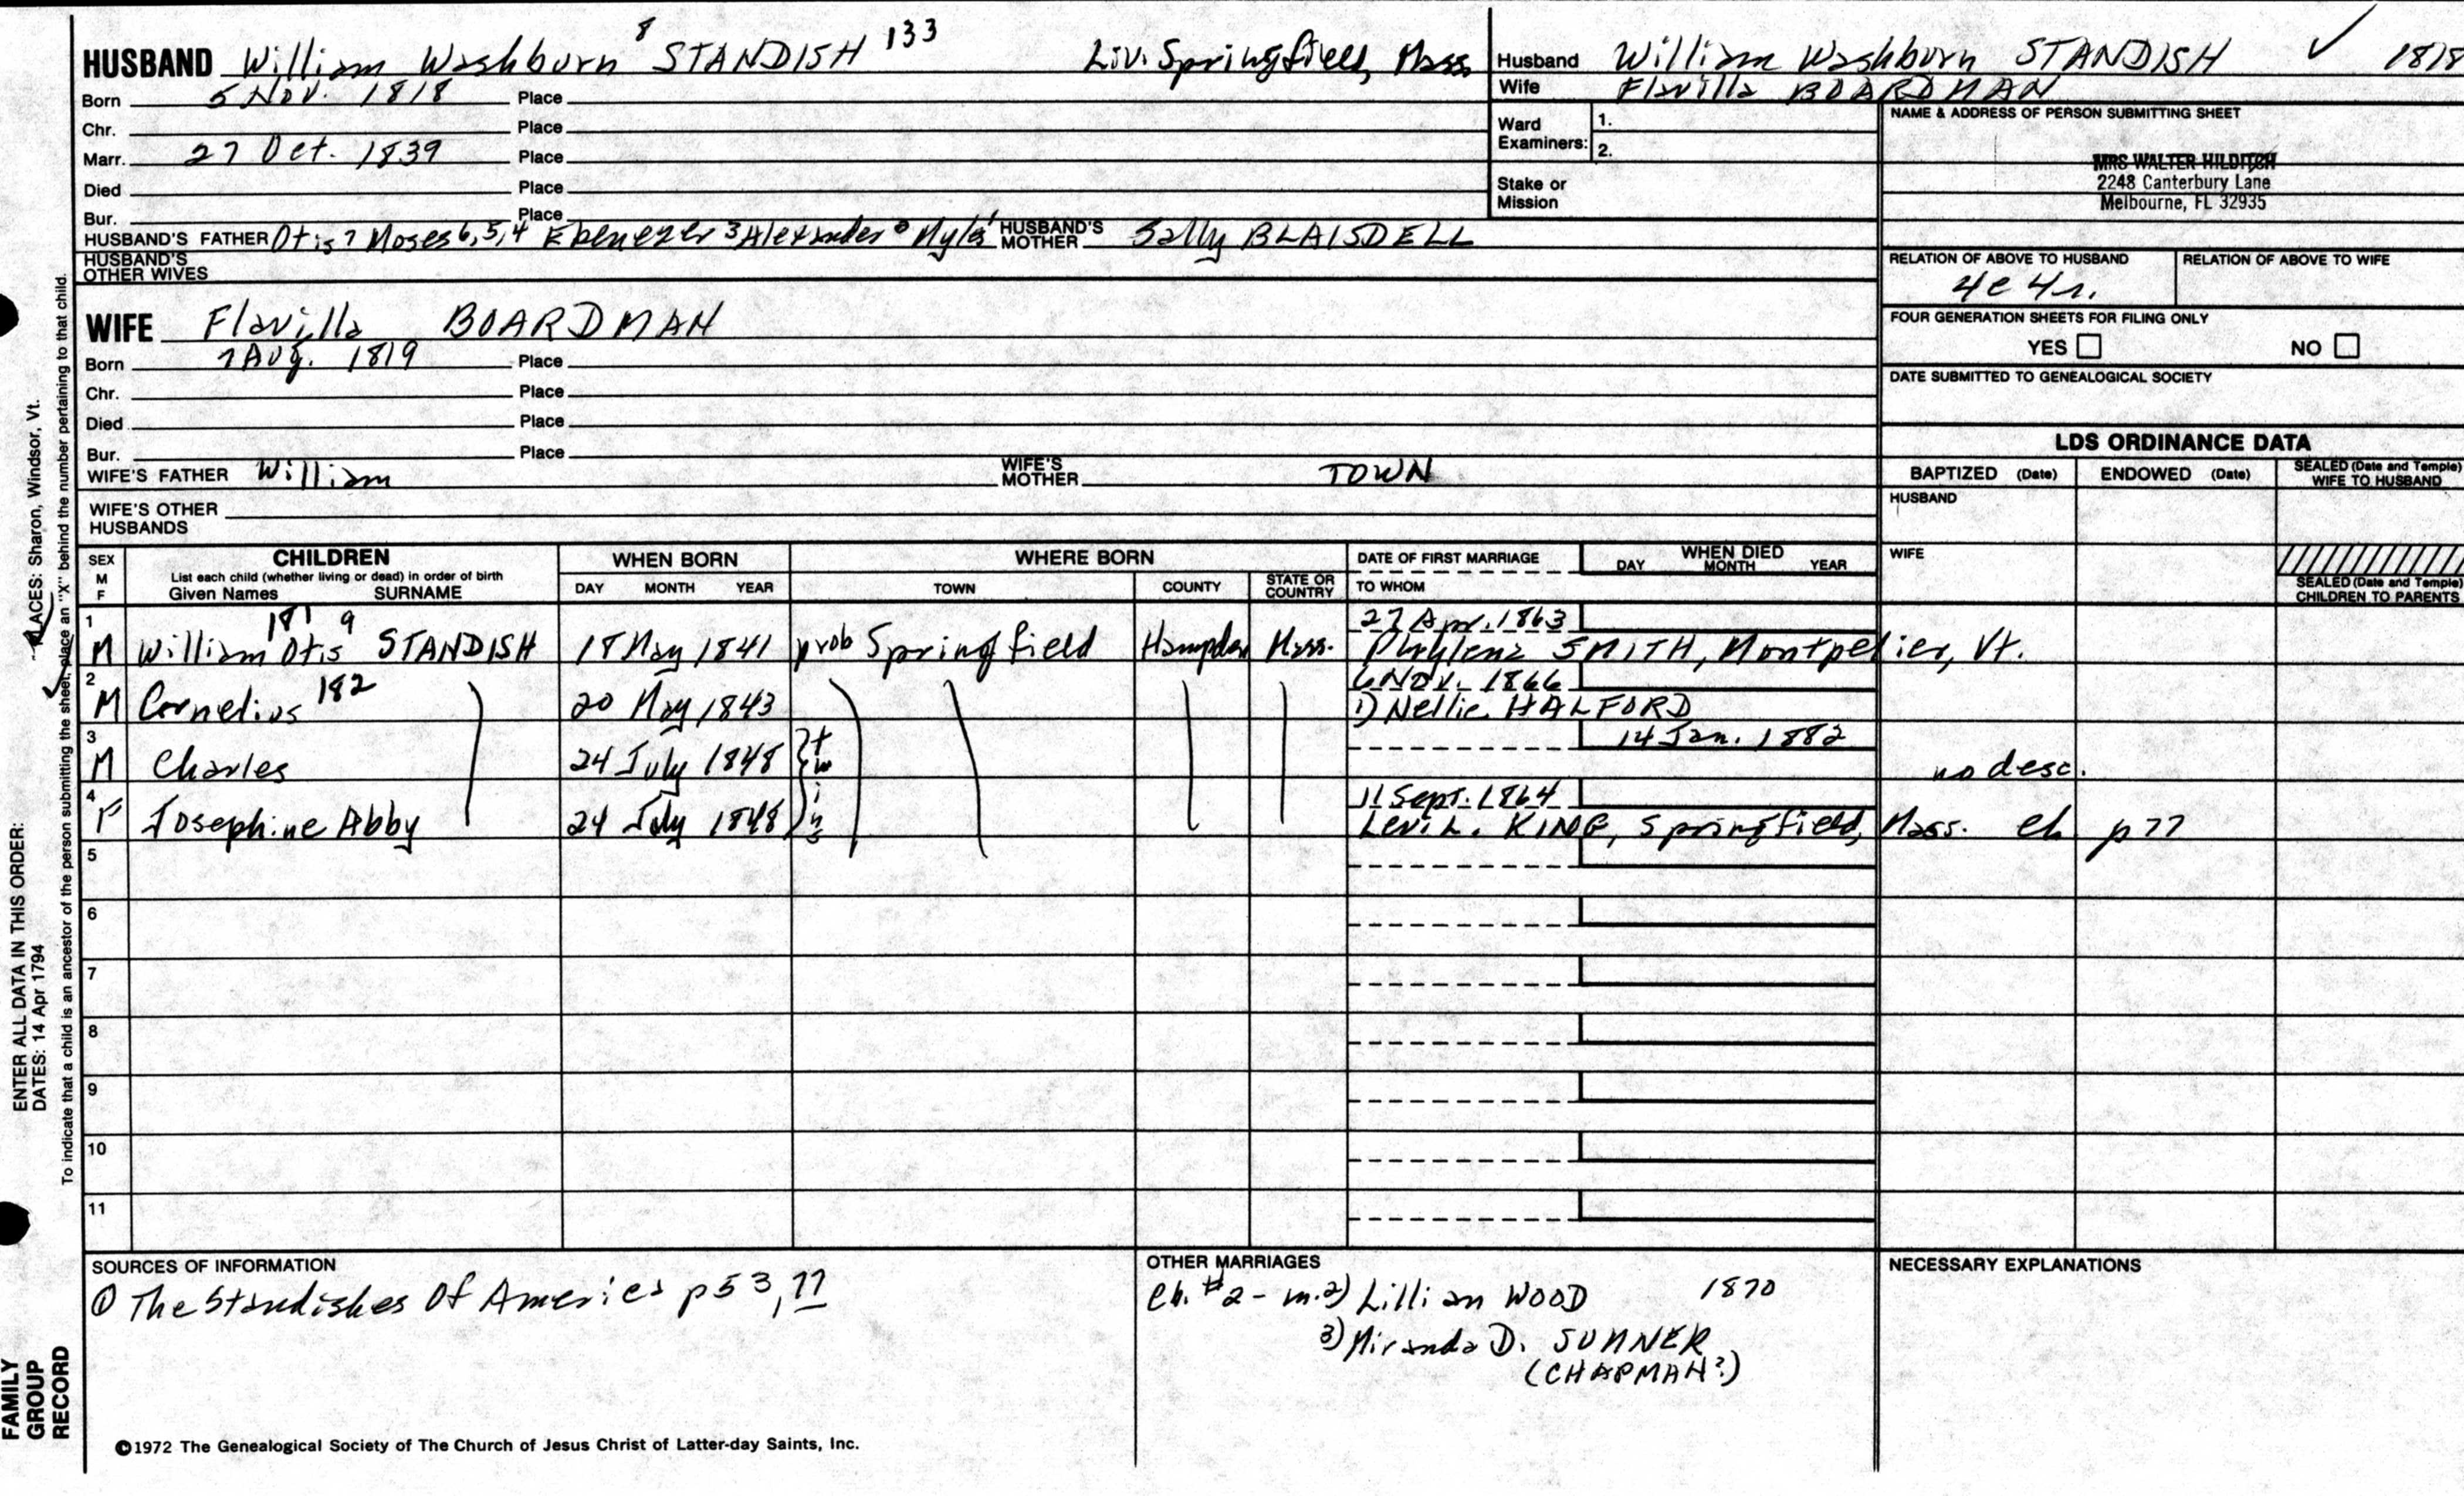 HUSBAND William Washburn 8 STANDISH 133 Liv. Springfield, Mass.
Born 5 Nov. 1818 Place
Chr. Place
Marr. 27 Oct. 1839 Place
Died Place
Bur. Place
HUSBAND'S FATHER Otis 7 Moses 6,5,4 Ebenezer 3 Alexander 2 Myles 1 HUSBAND'S MOTHER Sally BLAISDELL
HUSBAND'S OTHER WIVES
WIFE Flavilla BOARDMAN
Born 7 Aug. 1819 Place
Chr. Place
Died Place
Bur. Place
WIFE'S FATHER William WIFE'S MOTHER TOWN
WIFE'S OTHER HUSBANDS
Husband William Washburn STANDISH ✓ 1818
Wife Flavilla BOARDMAN
Ward Examiners: 1.
2.
Stake or Mission
NAME & ADDRESS OF PERSON SUBMITTING SHEET
MRS WALTER HILDITCH
2248 Canterbury Lane
Melbourne, FL 32935
RELATION OF ABOVE TO HUSBAND RELATION OF ABOVE TO WIFE
4c 4r.
FOUR GENERATION SHEETS FOR FILING ONLY
YES NO
DATE SUBMITTED TO GENEALOGICAL SOCIETY
LDS ORDINANCE DATA
BAPTIZED (Date) ENDOWED (Date) SEALED (Date and Temple) WIFE TO HUSBAND
HUSBAND
WIFE
SEALED (Date and Temple) CHILDREN TO PARENTS
SEX M F
CHILDREN
List each child (whether living or dead) in order of birth
Given Names SURNAME
WHEN BORN
DAY MONTH YEAR
WHERE BORN
TOWN COUNTY STATE OR COUNTRY
DATE OF FIRST MARRIAGE
TO WHOM
WHEN DIED
DAY MONTH YEAR
1 181 9 27 Apr. 1863
M William Otis STANDISH 18 May 1841 prob Springfield Hampden Mass. Phylena SMITH, Montpelier, Vt.
2 182 6 Nov. 1866
M Cornelius 20 May 1843 1) Nellie HALFORD
3 14 Jan. 1882
M Charles 24 July 1848 twins no desc.
4 11 Sept. 1864
F Josephine Abby 24 July 1848 Levi L. KING, Springfield, Mass. ch p 77
5
6
7
8
9
10
11
SOURCES OF INFORMATION
① The Standishes Of America p 53, 77
OTHER MARRIAGES
Ch. #2 - m. 2) Lillian WOOD 1870
3) Miranda D. SUMNER
(CHAPMAN?)
NECESSARY EXPLANATIONS
©1972 The Genealogical Society of The Church of Jesus Christ of Latter-day Saints, Inc.
FAMILY GROUP RECORD
ENTER ALL DATA IN THIS ORDER:
DATES: 14 Apr 1794
PLACES: Sharon, Windsor, Vt.
To indicate that a child is an ancestor of the person submitting the sheet, place an "X" behind the number pertaining to that child.